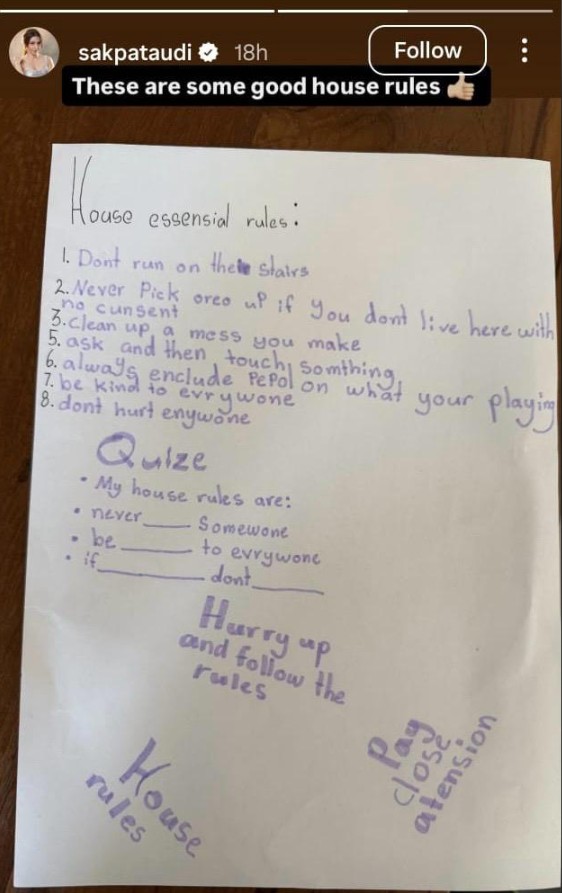 sakpataudi 18h
Follow
These are some good house rules 👍🏻
House essensial rules:
1. Dont run on the stairs
2. Never Pick oreo up if you dont live here with
no cunsent
3. clean up a mess you make
5. ask and then touch somthing
6. always enclude PePol on what your playing
7. be kind to evrywone
8. dont hurt enywone
Quize
• My house rules are:
• never____ Somewone
• be______ to evrywone
• if_________ dont______
Hurry up
and follow the
rules
House
rules
Pay
close
atension